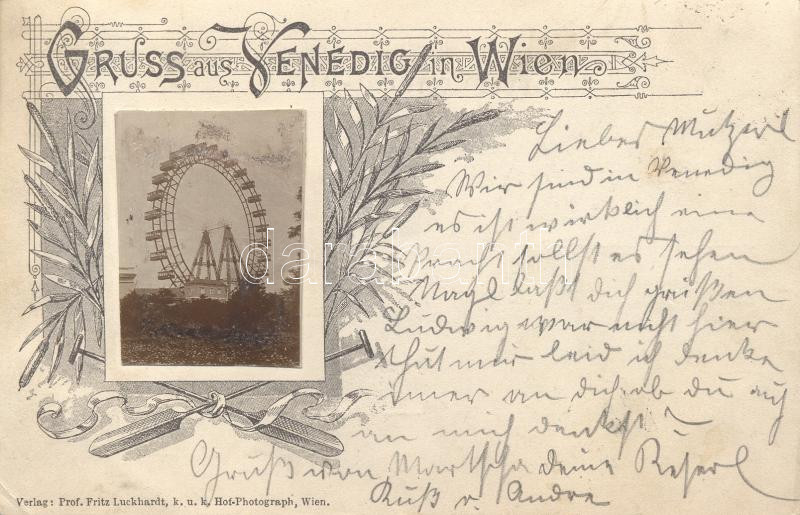 GRUSS aus VENEDIG in WIEN
Liebes Mutzerl
Wir sind in Venedig
es ist wirklich eine
Pracht sollst es sehen
Nagl laßt dich grüßen
Ludwig war nicht hier
thut mir leid ich denke
imer an dich ob du auch
an mich denkst?
Gruß von deine Reserl
Kuß v. Andre
Verlag: Prof. Fritz Luckhardt, k. u. k. Hof-Photograph, Wien.
darabanth